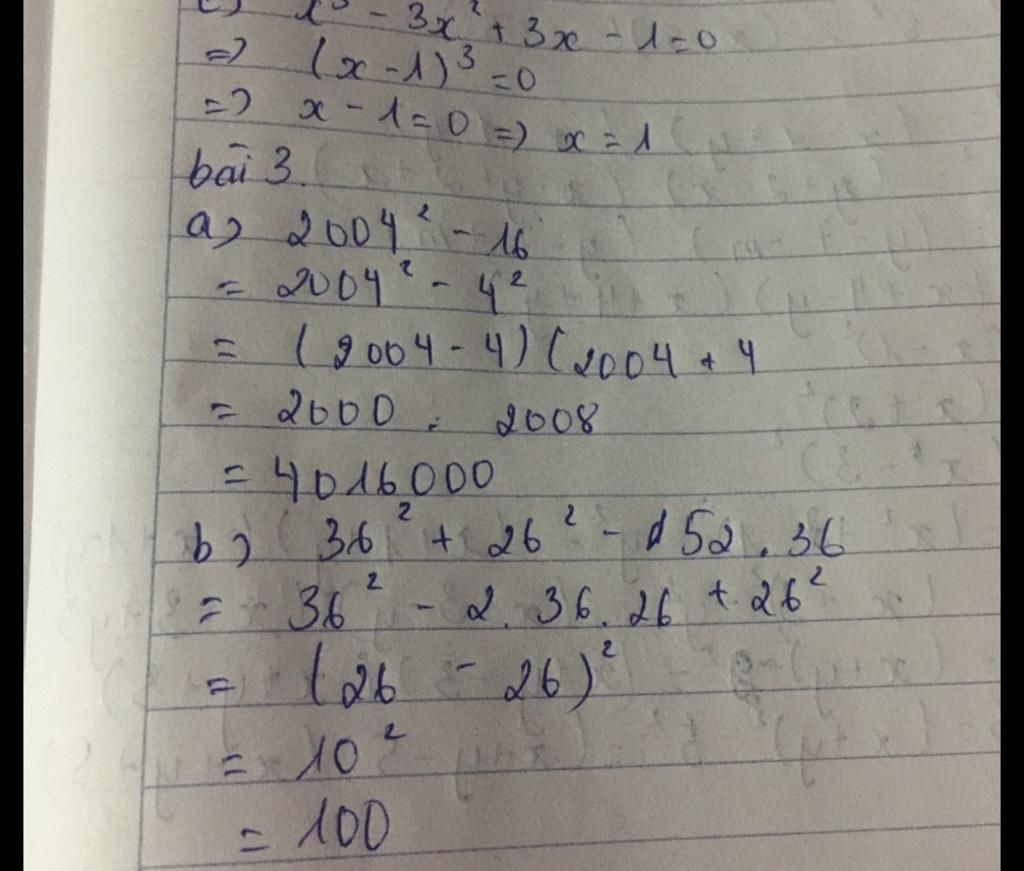 c) x³ - 3x² + 3x - 1 = 0
=> (x - 1)³ = 0
=> x - 1 = 0 => x = 1
bài 3.
a) 2004² - 16
= 2004² - 4²
= (2004 - 4) (2004 + 4
= 2000 . 2008
= 4016000
b) 36² + 26² - 52 . 36
= 36² - 2 . 36 . 26 + 26²
= (26 - 26)²
= 10²
= 100